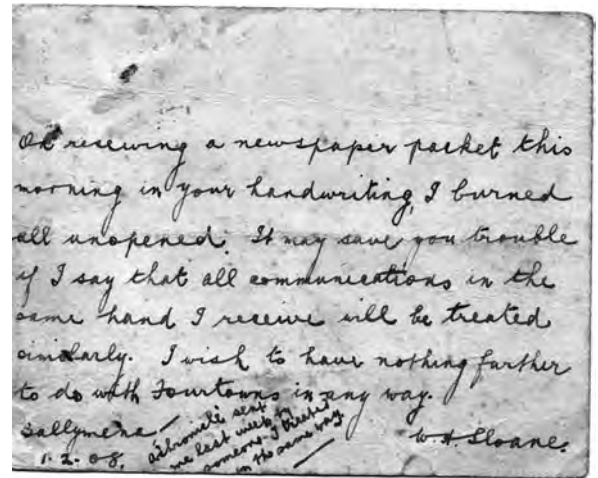 On receiving a newspaper packet this
morning in your handwriting, I burned
all unopened. It may save you trouble
if I say that all communications in the
same hand I receive will be treated
similarly. I wish to have nothing further
to do with Fourtowns in any way.
Ballymena —
1.2.08.
W. H. Sloane.
a chronicle sent
me last week by
someone I treated
in the same way.